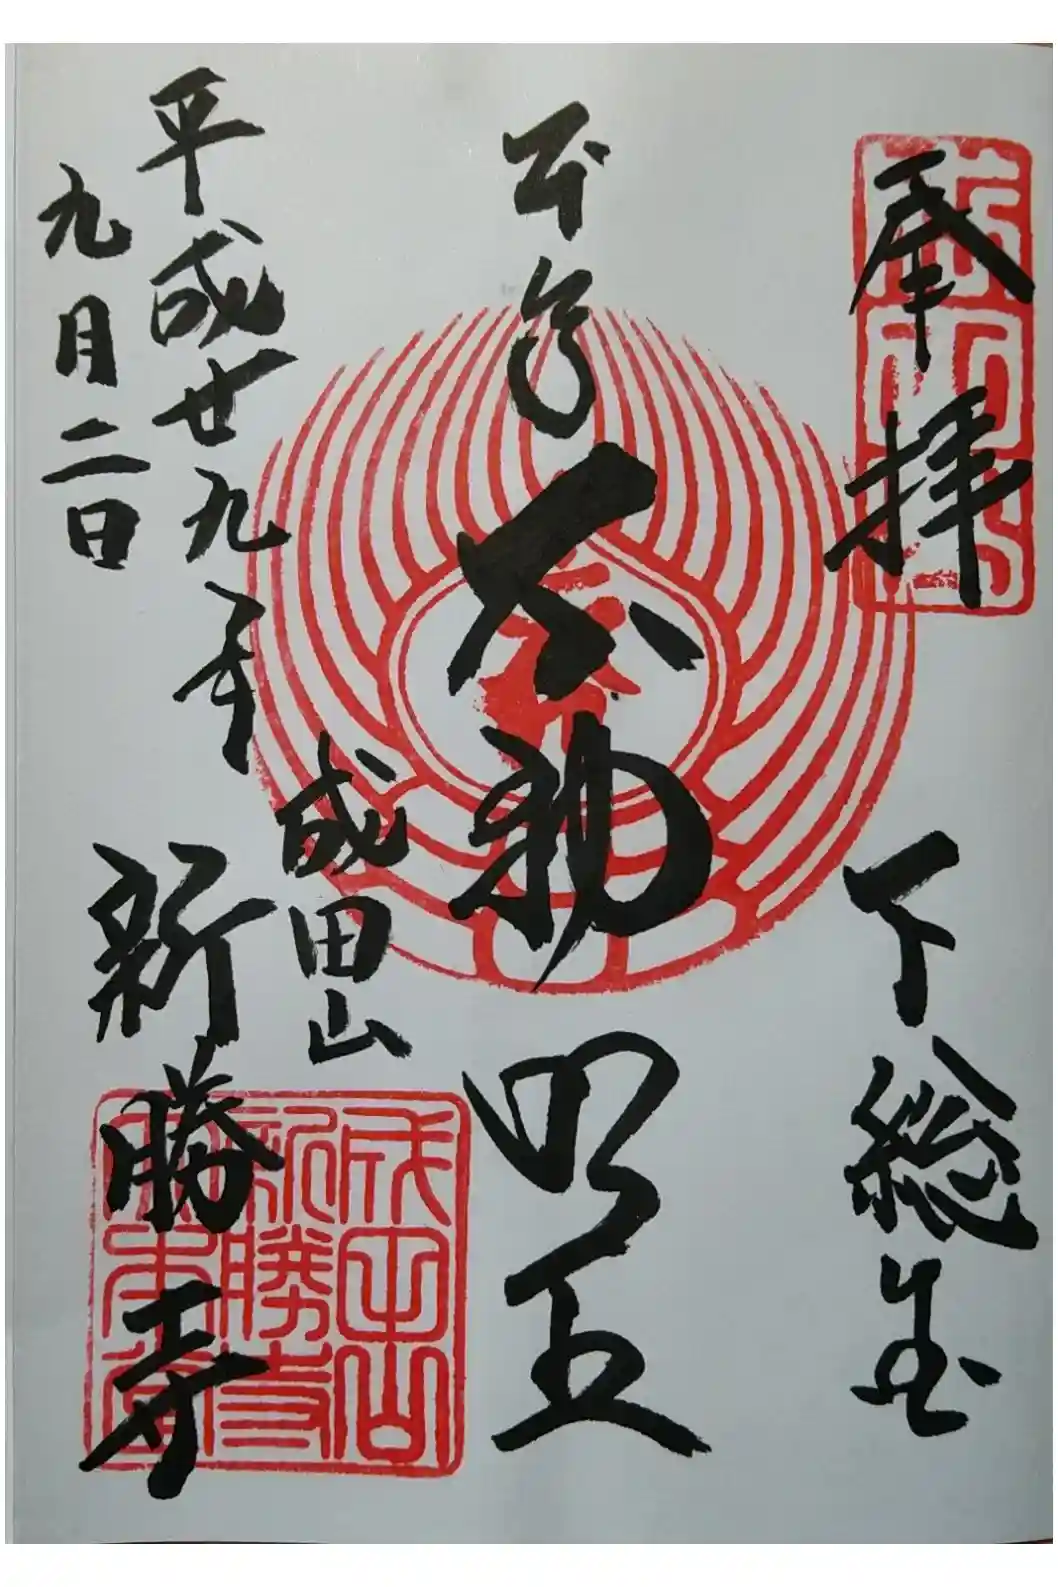 奉拝
下総国
本尊
不動明王
平成廿九年
九月二日
成田山
新勝寺
成田山
新勝寺